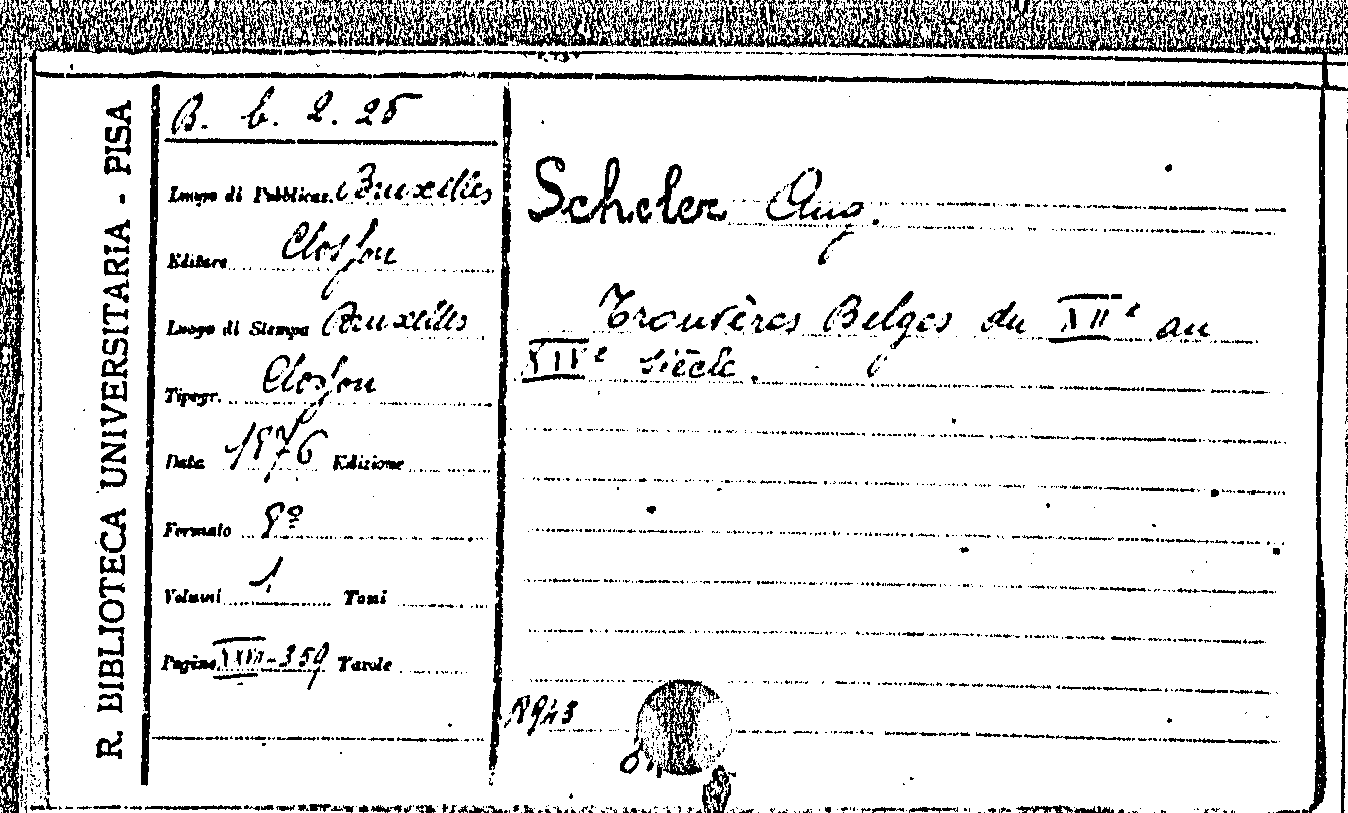 R. BIBLIOTECA UNIVERSITARIA - PISA
B. b. 2. 25
Luogo di Pubblicaz. Bruxelles
Editore Closson
Luogo di Stampa Bruxelles
Tipogr. Closson
Data 1876 Edizione
Formato 8º
Volumi 1 Tomi
Pagine XXIII-359 Tavole
Scheler Aug.
Trouvères Belges du XIIe au
XIVe siècle.